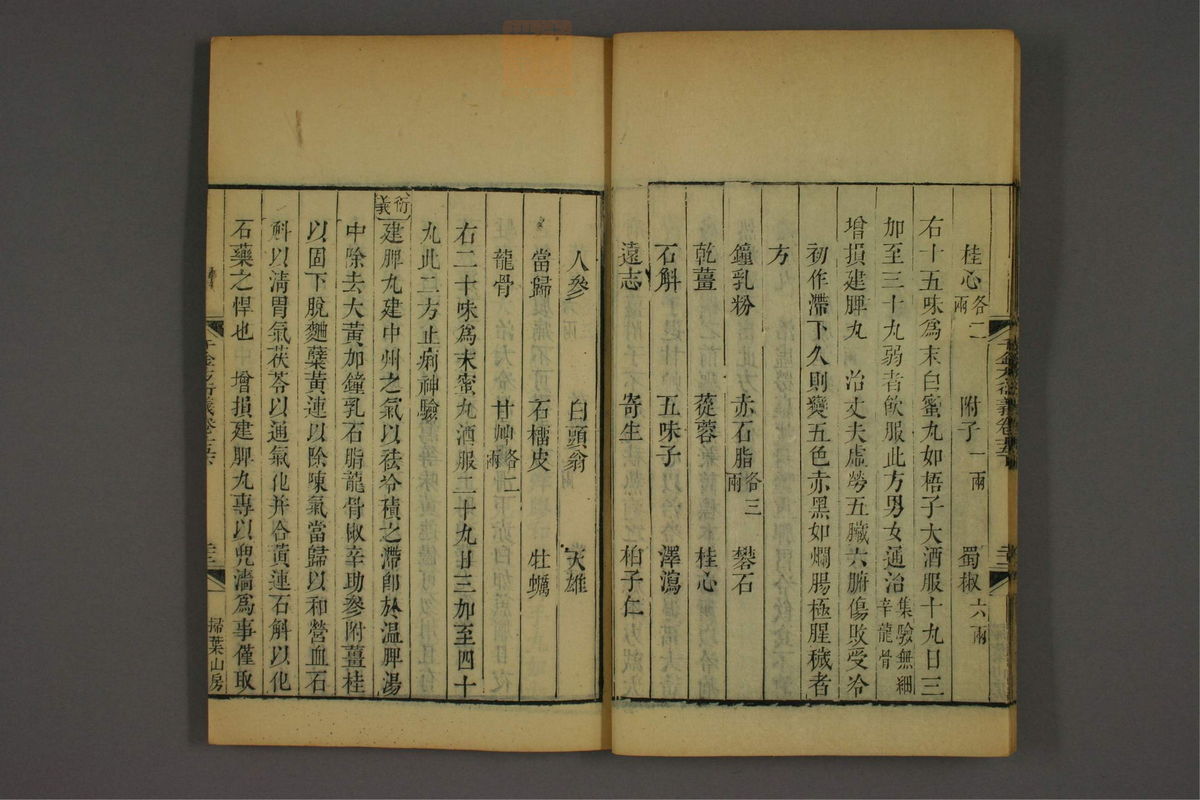 桂心各二兩 附子一兩 蜀椒六兩
右十五味爲末白蜜丸如梧子大酒服十丸日三
加至三十丸弱者飲服此方男女通治集驗無細辛龍骨
增損建脾丸 治丈夫虛勞五臟六腑傷敗受冷
初作滯下久則變五色赤黑如爛腸極腥穢者
方
鐘乳粉 赤石脂各三兩 礬石
乾薑 蓯蓉 桂心
石斛 五味子 澤瀉
遠志 寄生 柏子仁
人參 白頭翁 天雄
當歸 石榴皮 牡蠣
龍骨 甘艸各二兩
右二十味爲末蜜丸酒服二十丸日三加至四十
丸此二方止痢神驗
衍義
建脾丸建中州之氣以祛冷積之滯卽於溫脾湯
中除去大黃加鐘乳石脂龍骨椒辛助參附薑桂
以固下脫麯蘗黃連以除陳氣當歸以和營血石
斛以淸胃氣茯苓以通氣化幷合黃連石斛以化
石藥之悍也 增損建脾丸專以兜濇爲事僅取
掃葉山房